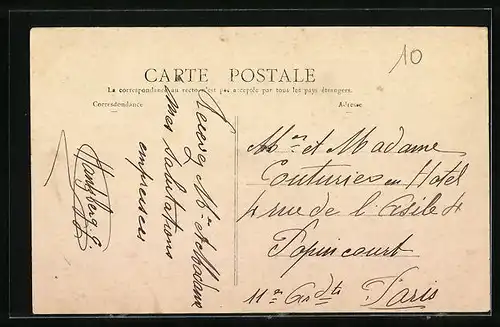 10
CARTE POSTALE
La correspondance au recto n'est pas acceptée par tous les pays étrangers.
Correspondance
Adresse
Recevez Mr et Madame
mes Salutations
empressées
Mr et Madame
Couturier en Hotel
4 rue de l'Asile 4
Popincourt
11e Paris